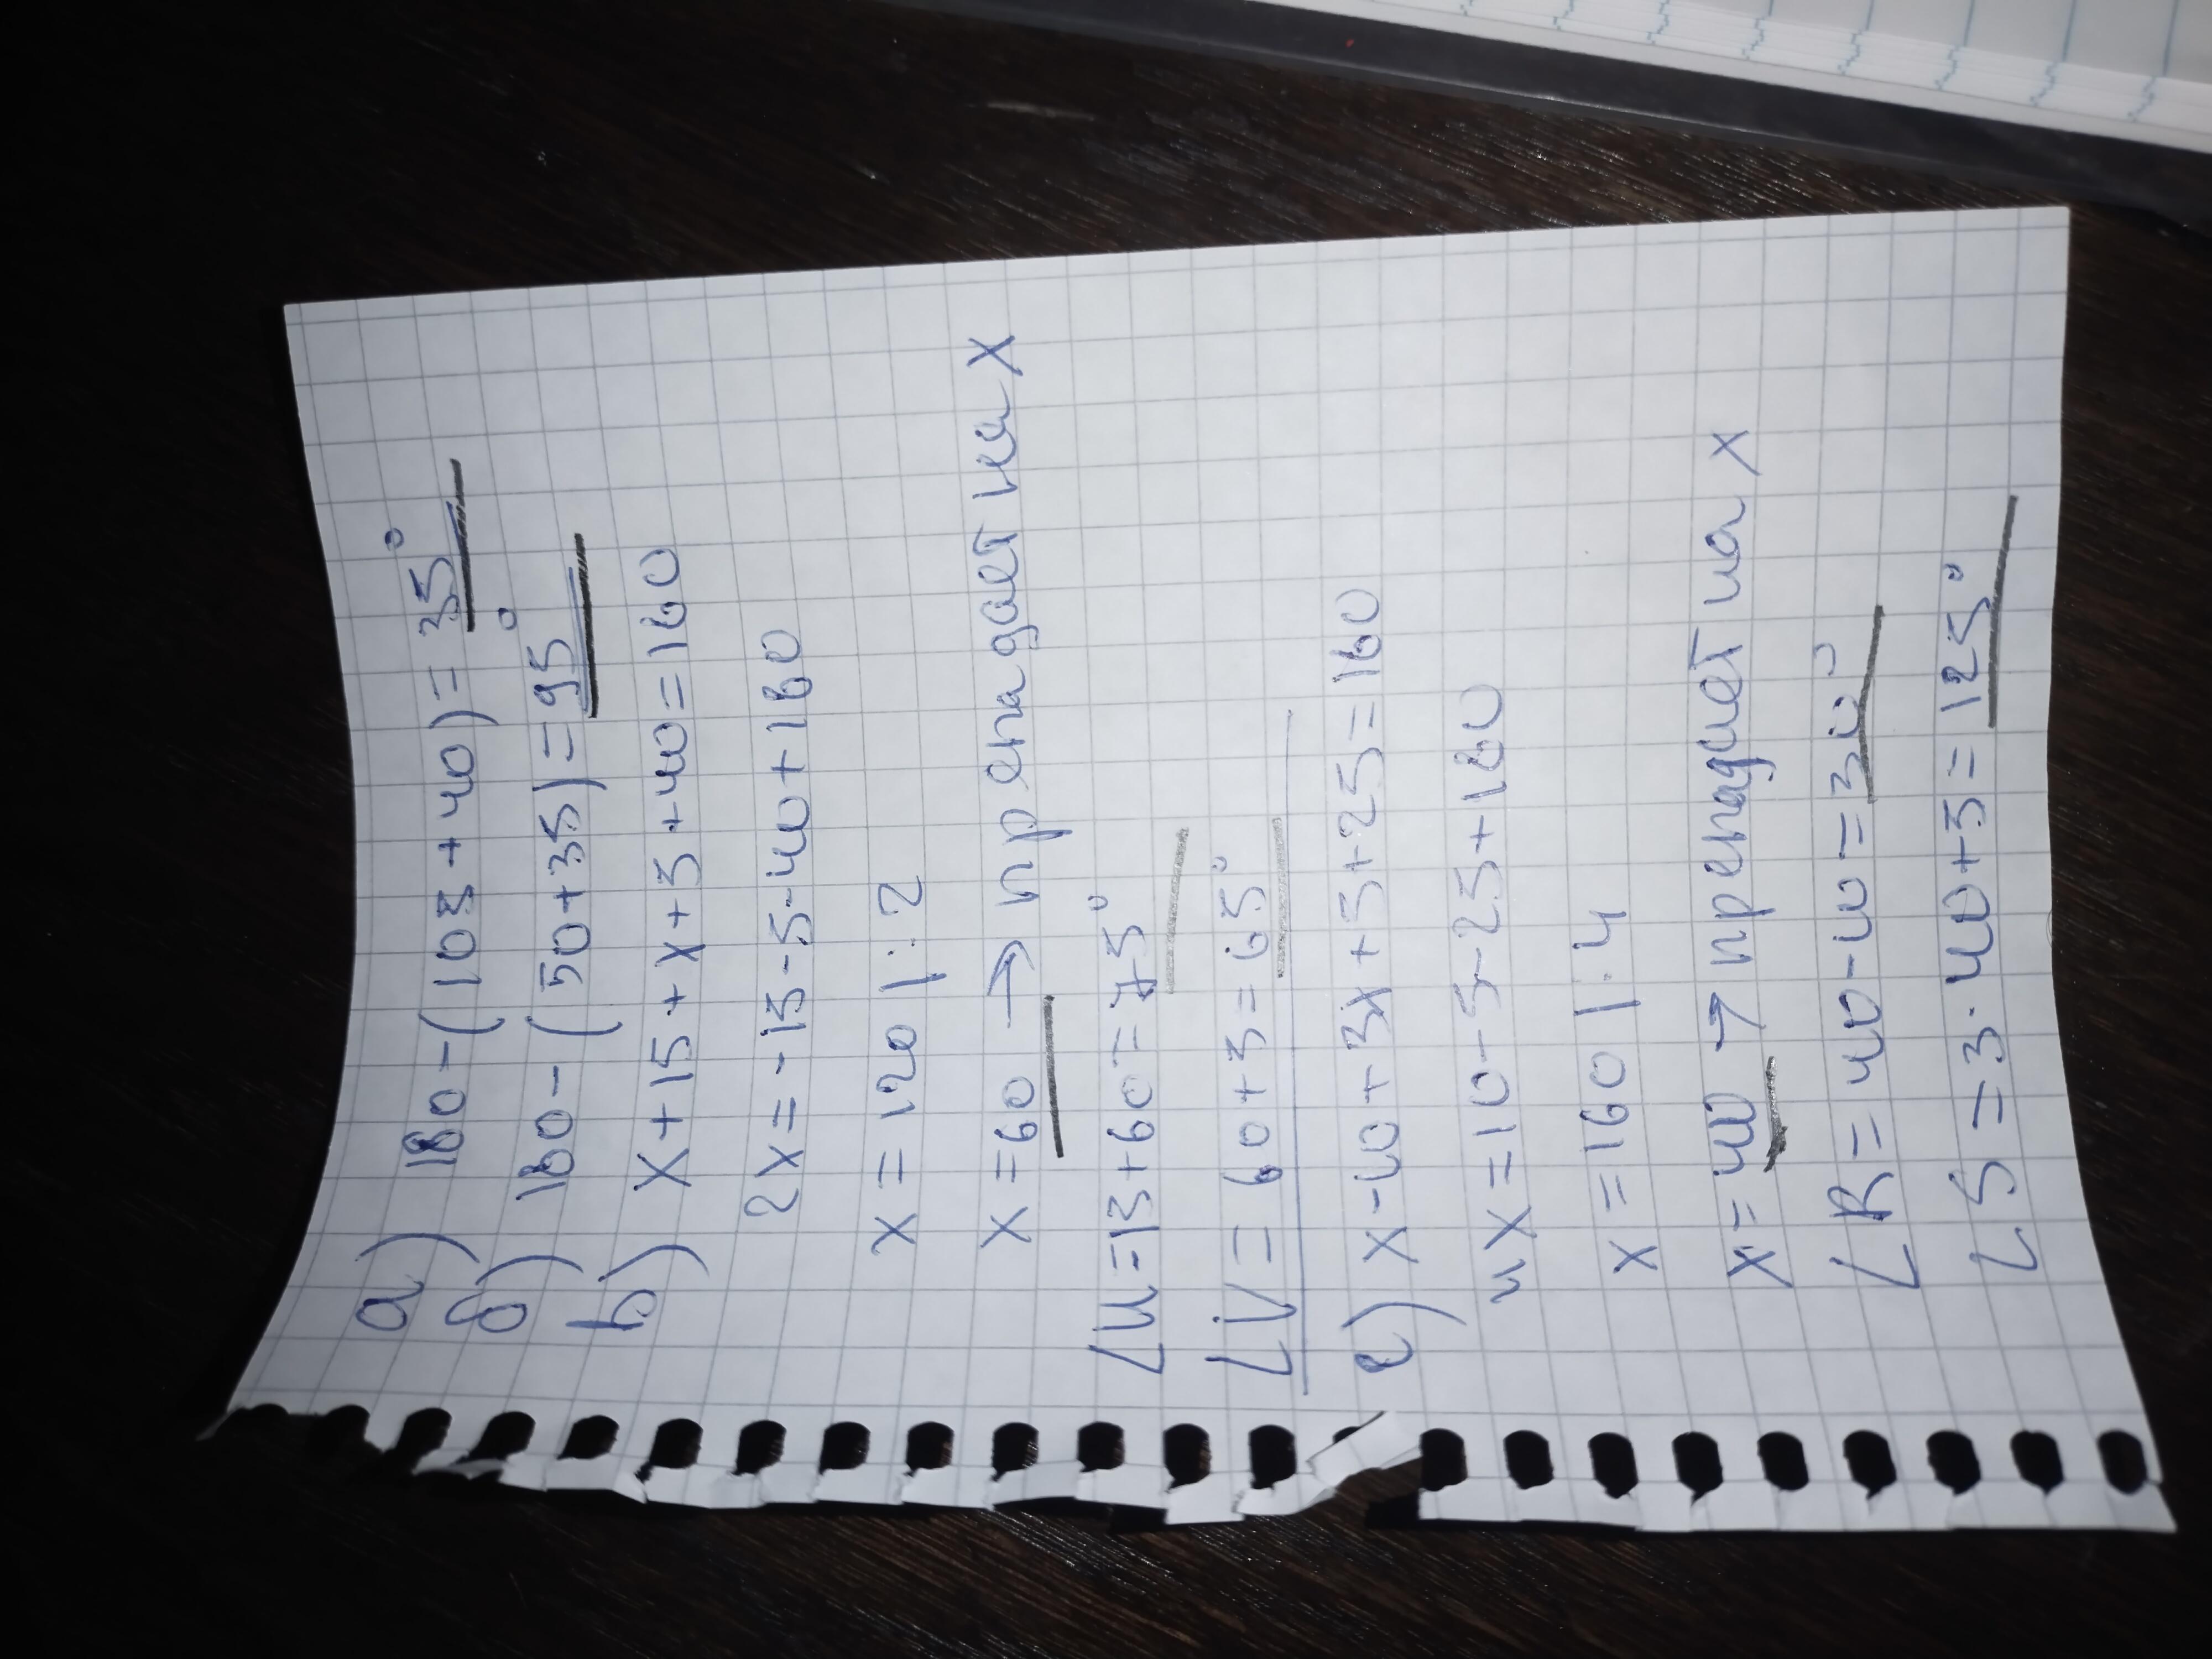 а) 180-(105+40)=35°
б) 180-(50+35)=95°
в) x+15+x+5+40=180
2x=-15-5-40+180
x=120 |:2
x=60 → препадает на x
∠U=15+60=75°
∠V=60+5=65°
г) x-10+3x+5+25=180
4x=10-5-25+180
x=160 |:4
x=40 → препадает на x
∠R=40-10=30°
∠S=3·40+5=125°